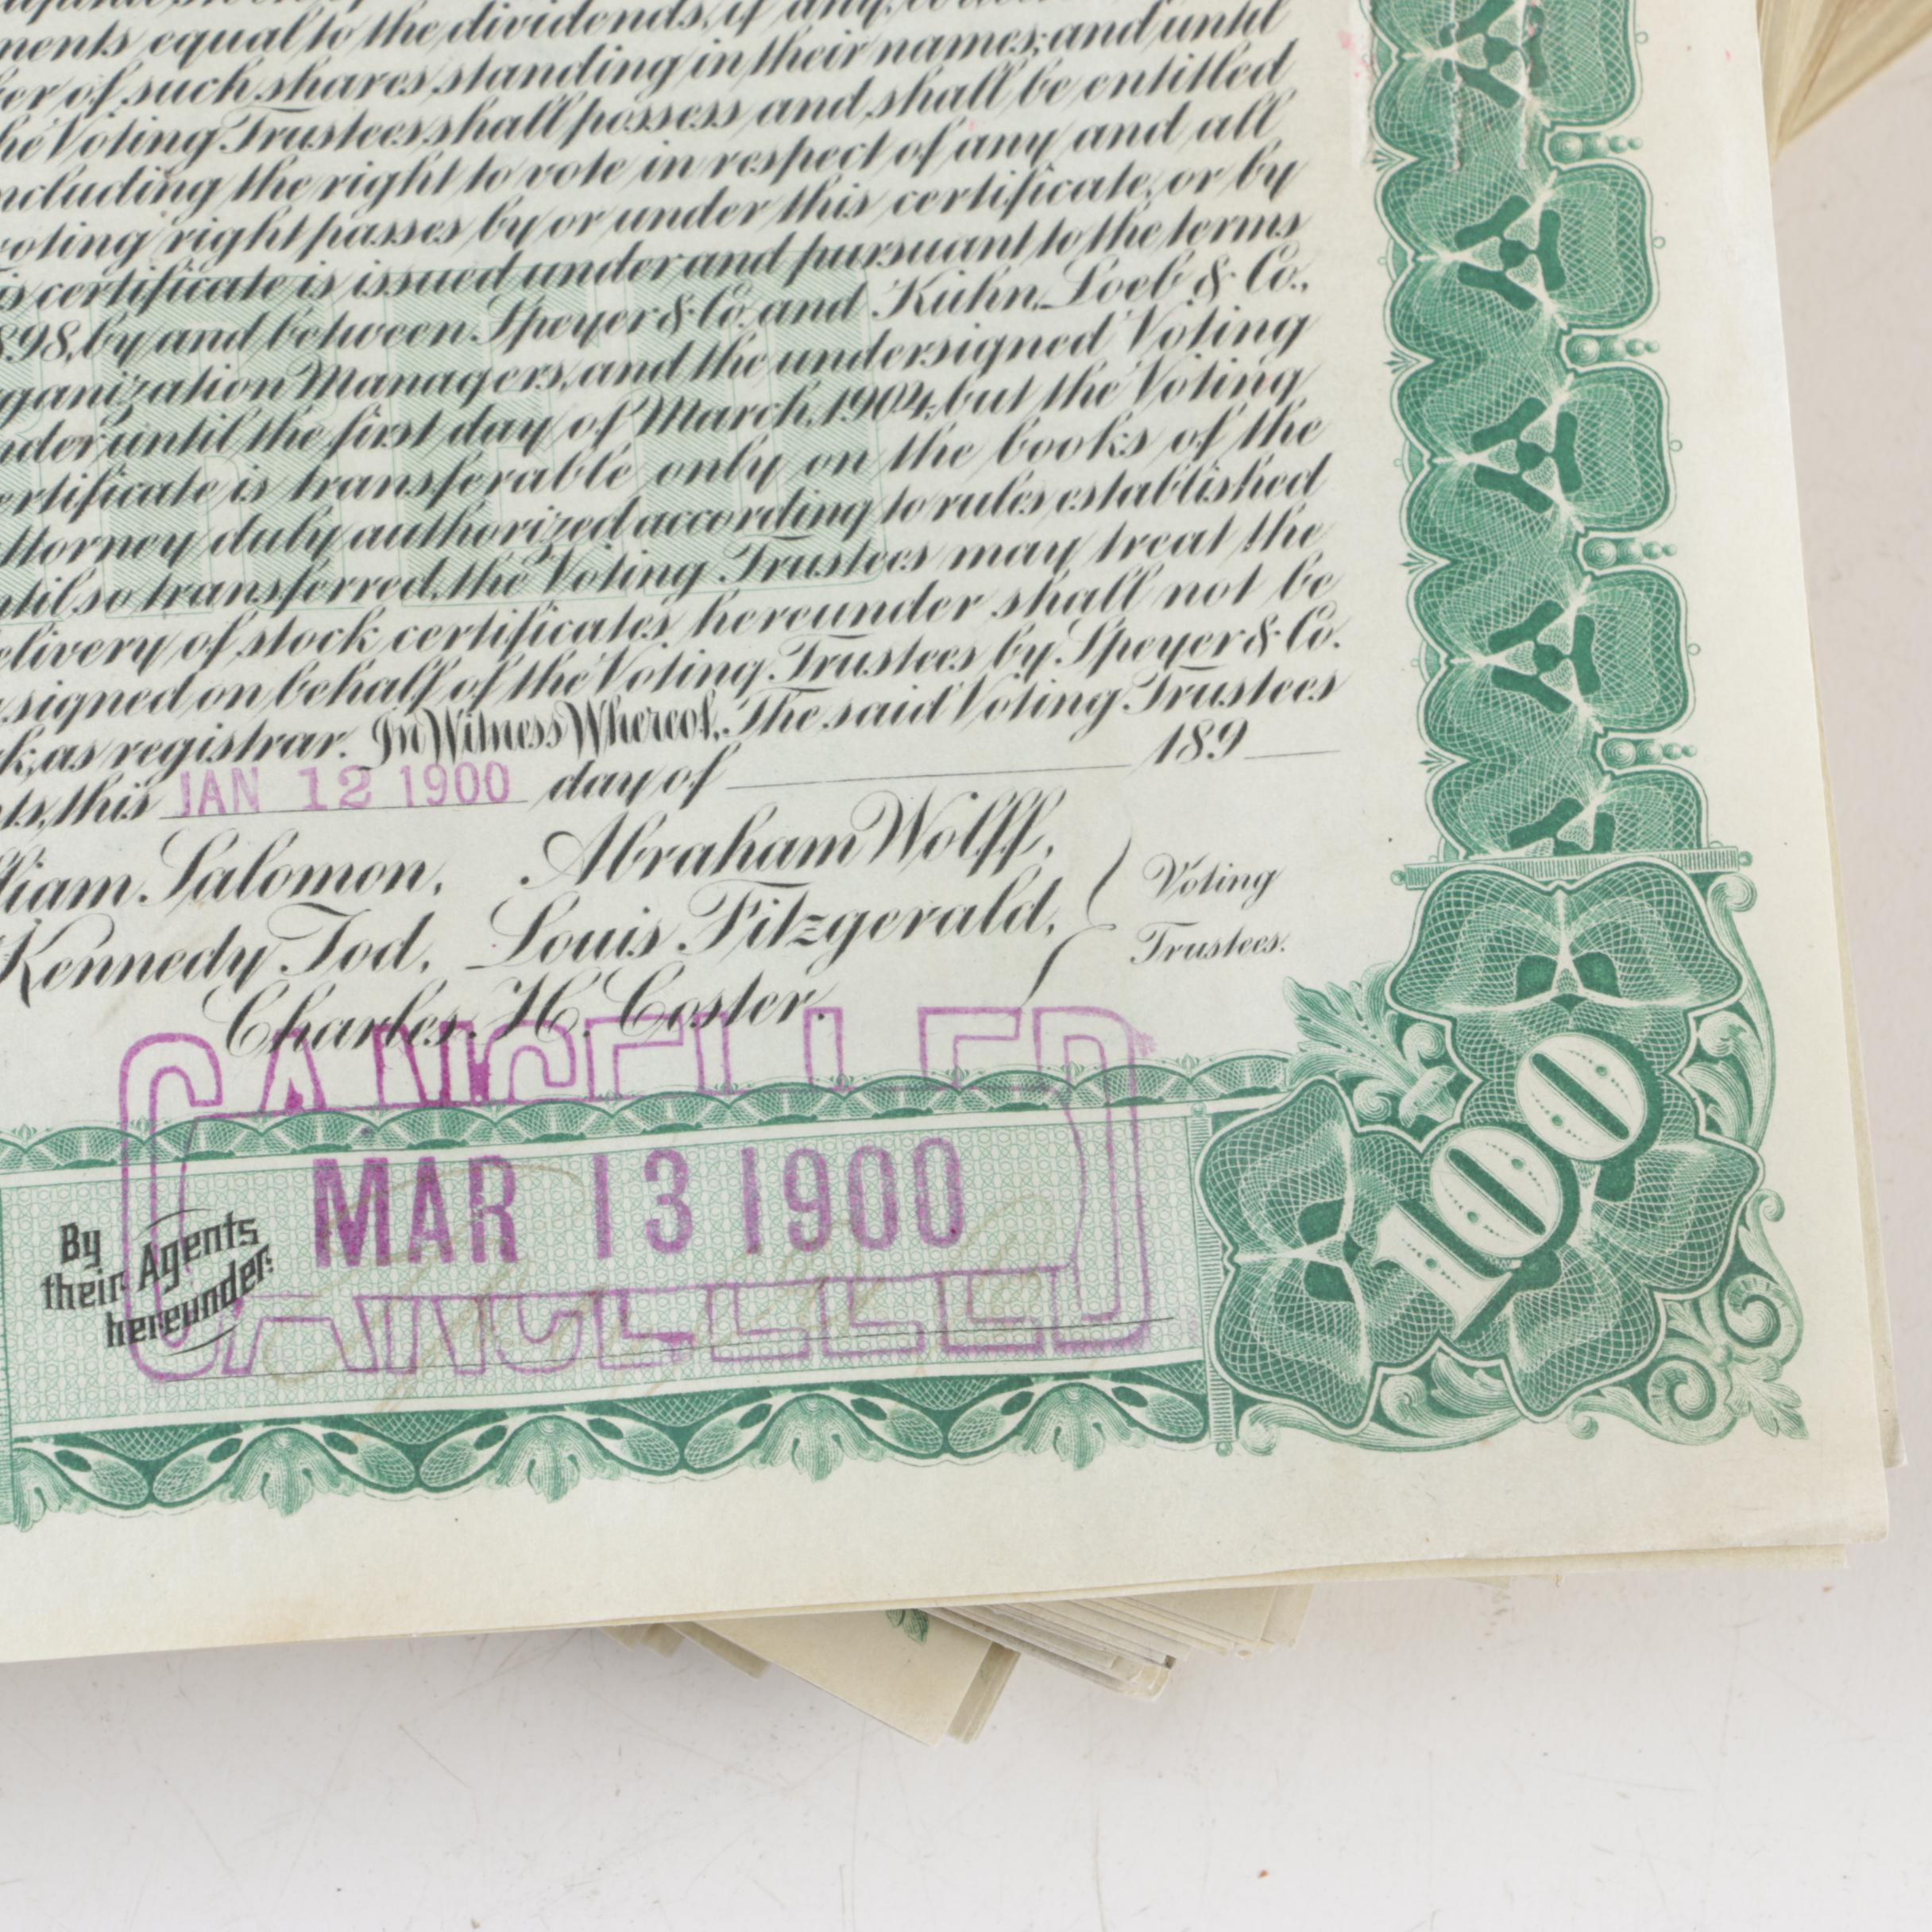 equal to the dividends, if any,
er of such shares standing in their names; and until
he Voting Trustees shall possess and shall be entitled
ncluding the right to vote in respect of any and all
voting right passes by or under this certificate, or by
is certificate is issued under and pursuant to the terms
898, by and between Speyer & Co. and Kuhn, Loeb & Co.,
ganization Managers, and the undersigned Voting
nder until the first day of March, 1904, but the Voting
ertificate is transferable only on the books of the
ttorney duly authorized according to rules established
ntil so transferred, the Voting Trustees may treat the
elivery of stock certificates hereunder shall not be
signed on behalf of the Voting Trustees by Speyer & Co.
k, as registrar. In Witness Whereof, The said Voting Trustees
ts, this JAN 12 1900 day of 189
lliam Salomon, Abraham Wolff,
Kennedy Tod, Louis Fitzgerald,
Charles H. Coster.
Voting
Trustees.
CANCELLED
MAR 13 1900
CANCELLED
By
their Agents
hereunder:
100